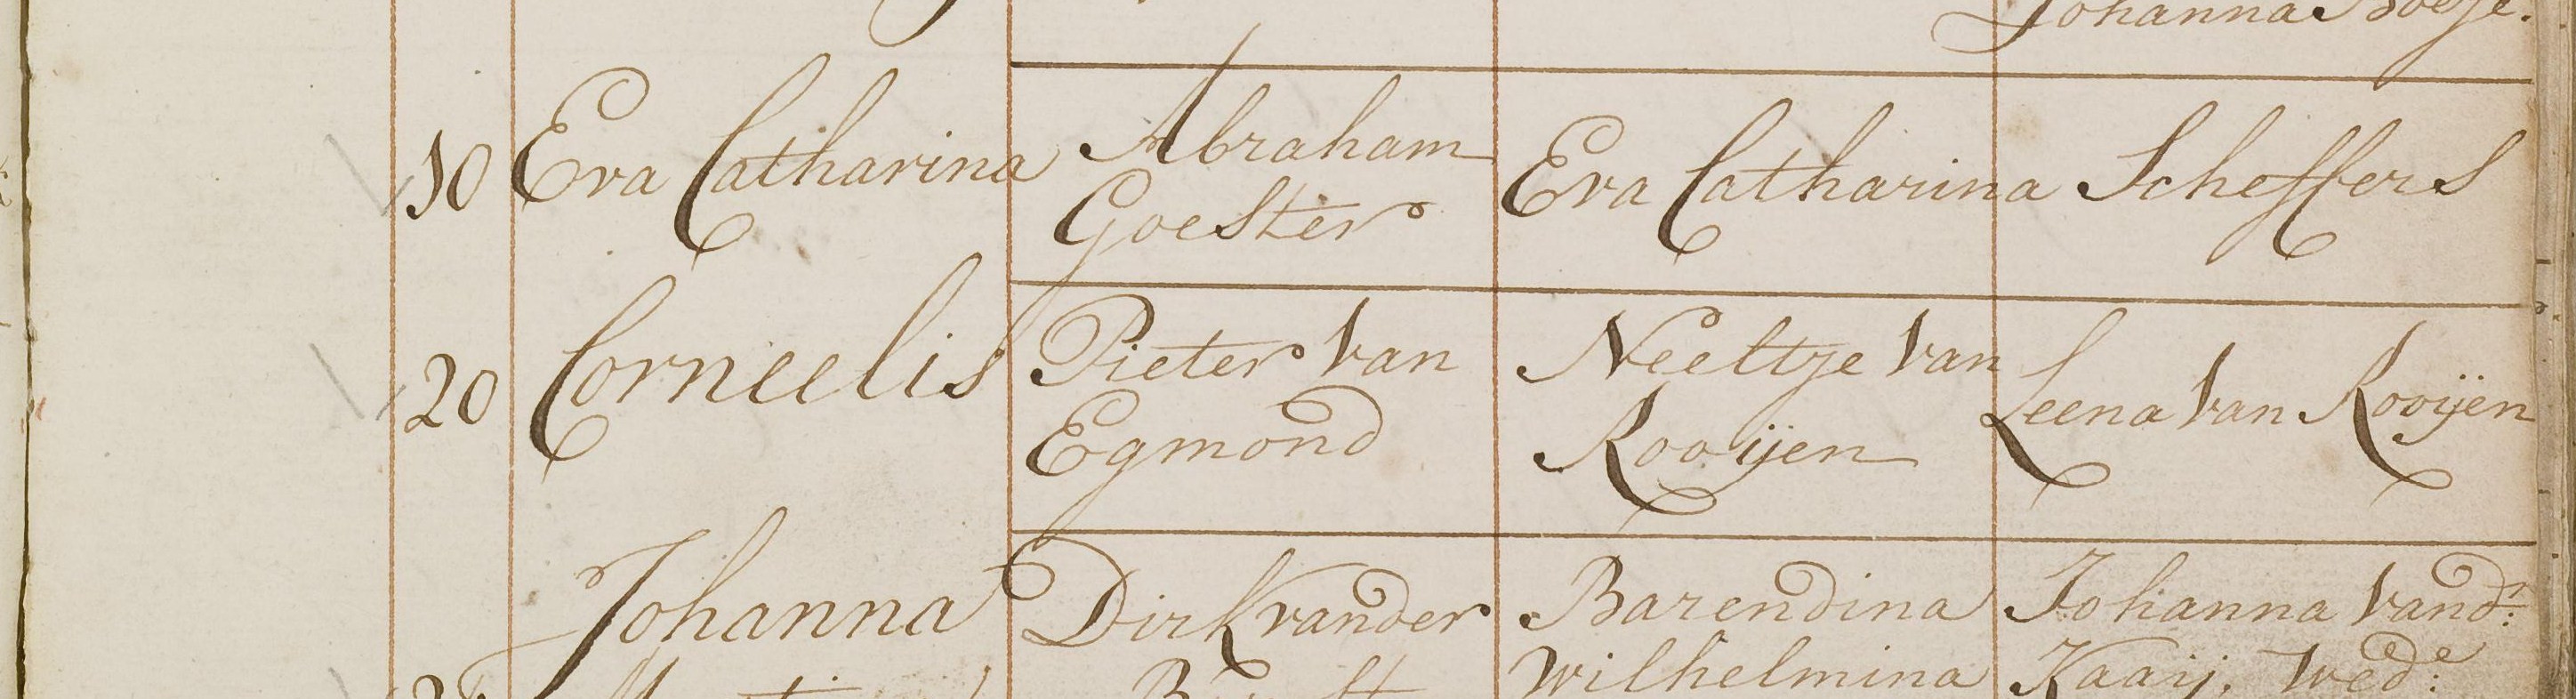 Johanna
10 Eva Catharina Abraham Goester Eva Catharina Scheffers
20 Corneelis Pieter van Egmond Neeltje van Rooijen Leena van Rooijen
Johanna Dirk vander Barendina Johanna vand:r
Wilhelmina Kaaij. Wed:e